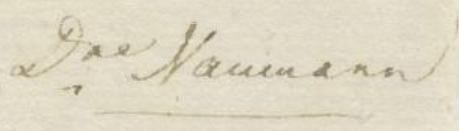 Dae Naumann